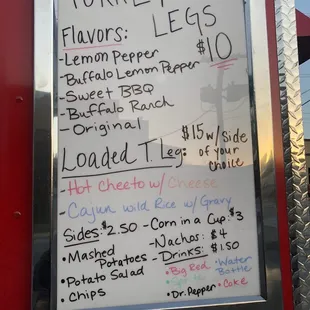 TURKEY
LEGS
Flavors: $10
-Lemon Pepper
-Buffalo Lemon Pepper
-Sweet BBQ
-Buffalo Ranch
-Original
Loaded T. Leg: $15 w/ Side of your Choice
-Hot Cheeto w/ Cheese
-Cajun wild Rice w/ Gravy
Sides: $2.50
• Mashed Potatoes
• Potato Salad
• Chips
-Corn in a Cup: $3
-Nachos: $4
-Drinks: $1.50
• Big Red • Water Bottle
• Dr. Pepper • Coke